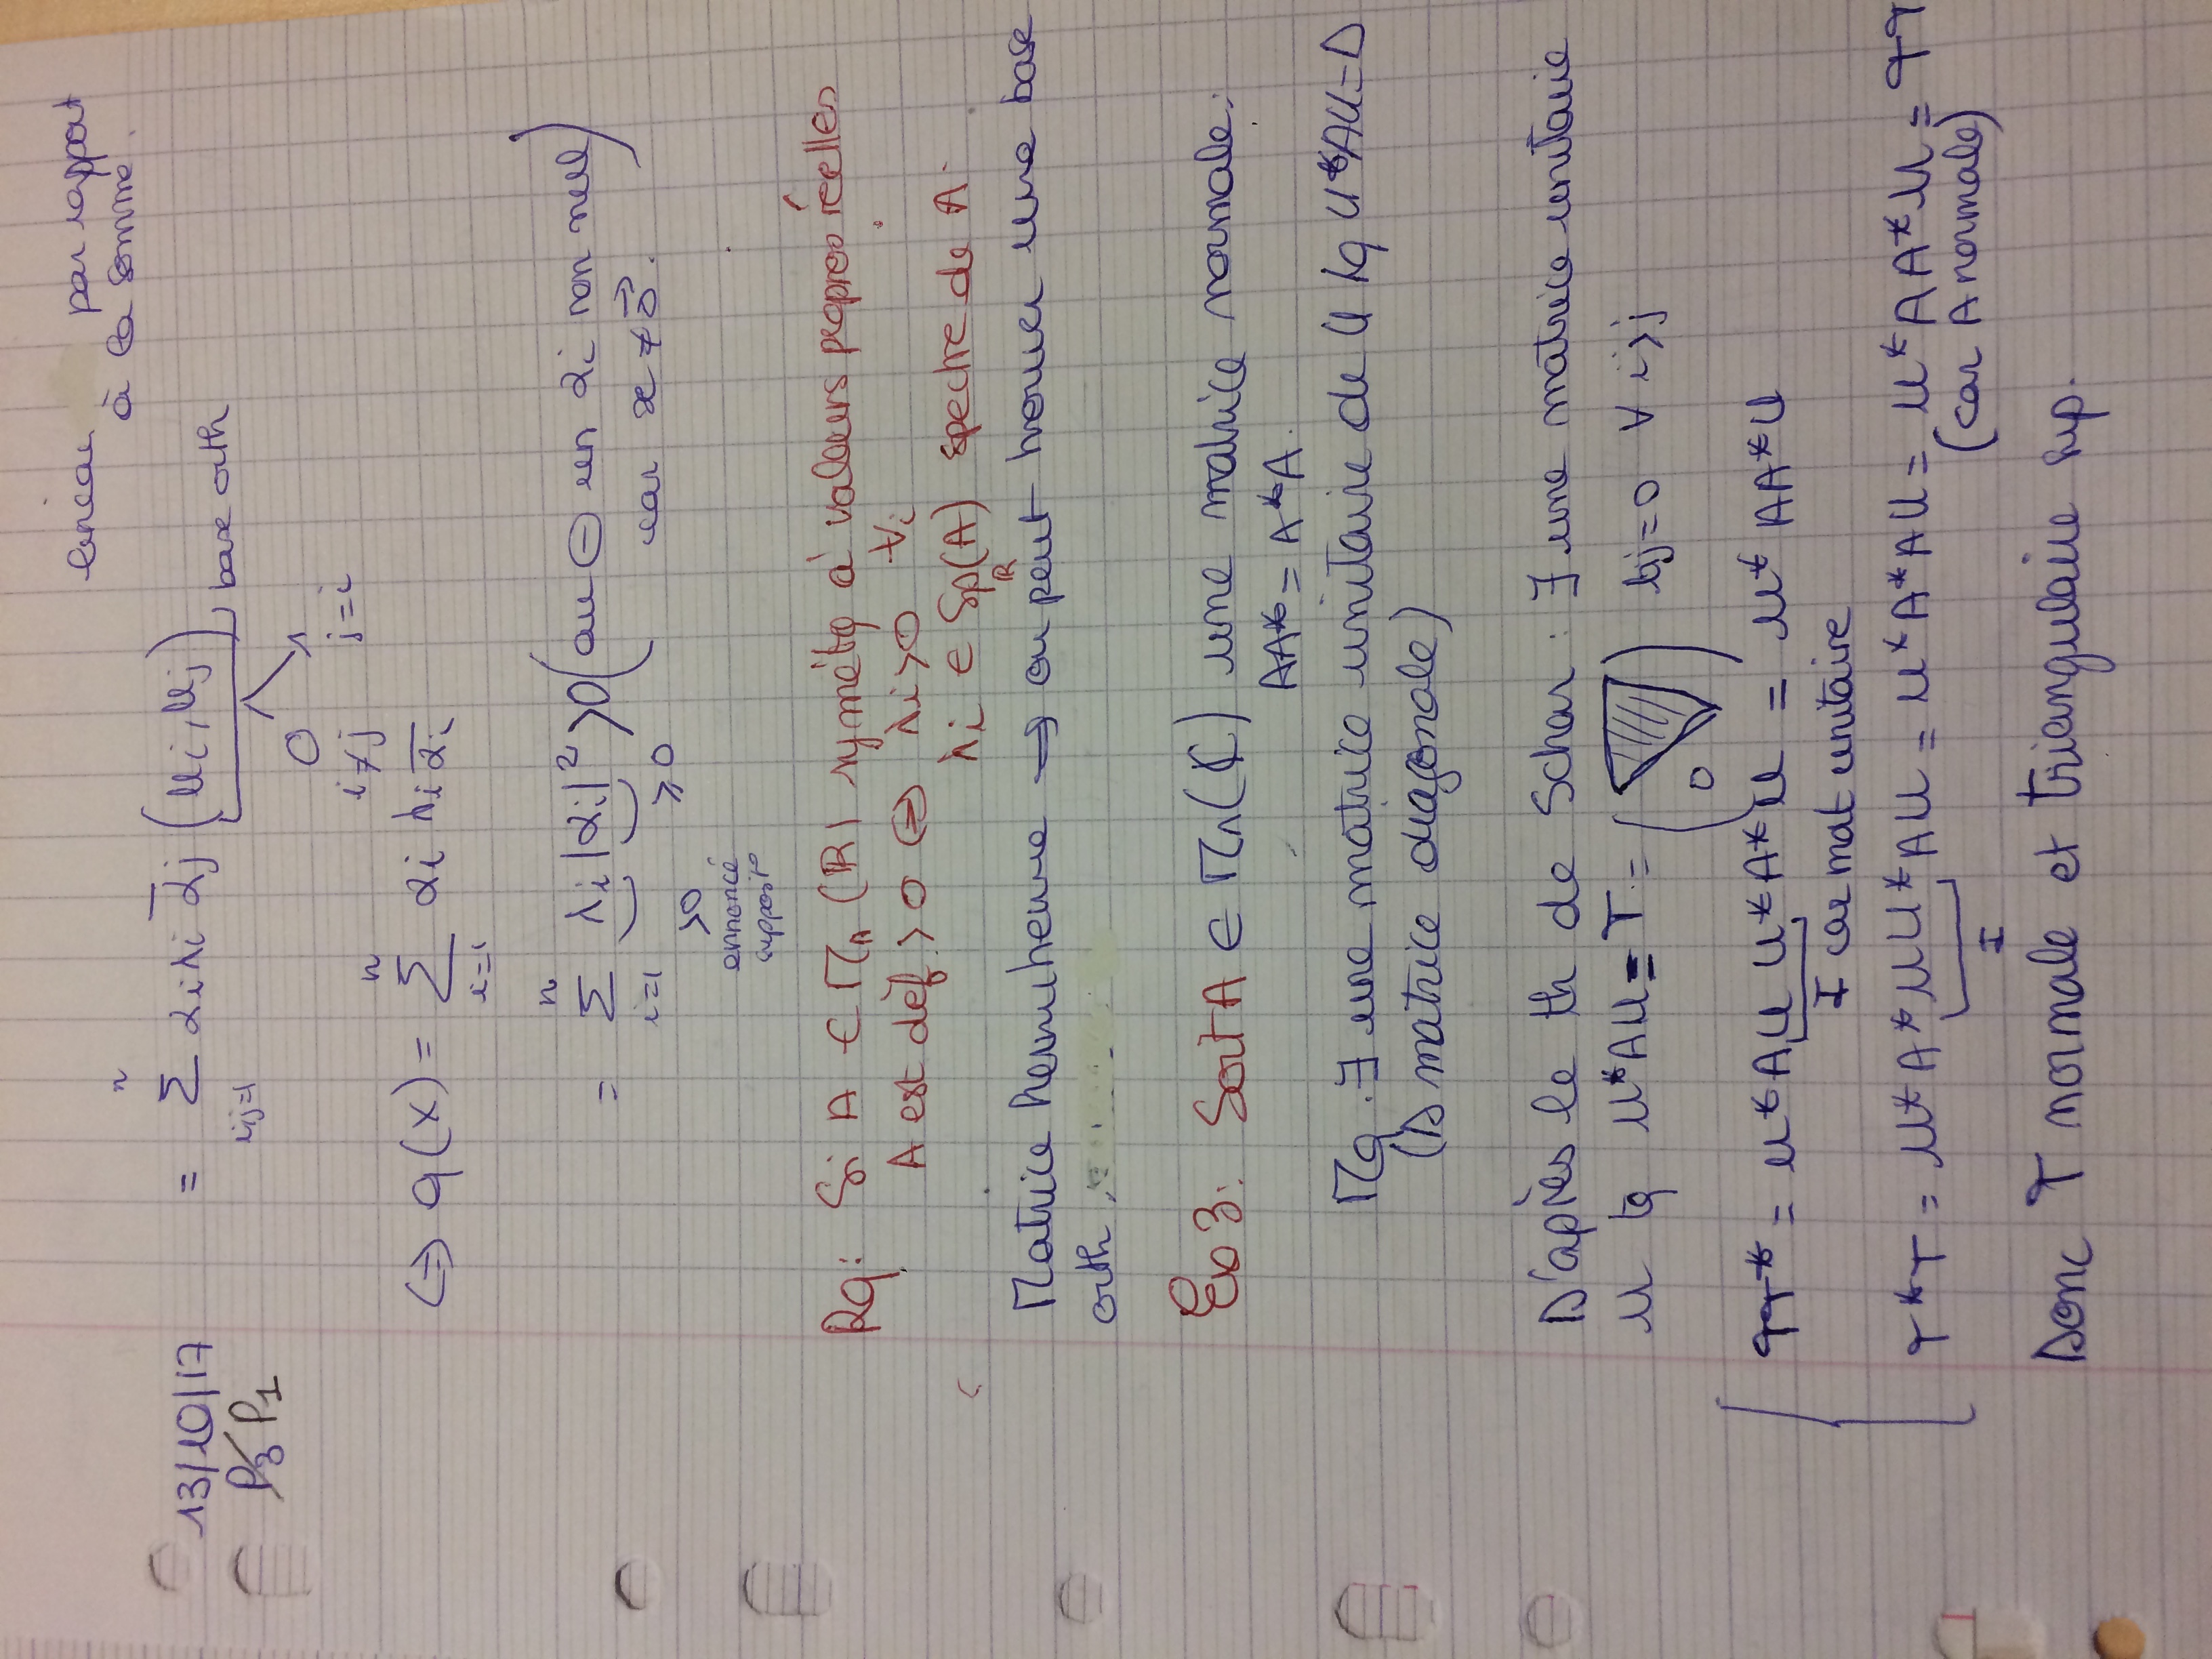 par rapport
à la somme.
13/10/17
P3 P1
= Σ αiλi ᾱj (ui, uj) base orth
n
i,j=1
0 1
i≠j j=i
⇔ q(x) = Σ αi λi ᾱi
n
i=1
= Σ λi |αi|² >0 (au ⊖ un αi non nul
n
i=1
≥0 car x ≠ 0⃗.)
>0
ennoncé
Rq: Si A ∈ Mn (R) symétq à valeurs propres réelles
A est déf >0 ⇔ λi>0 ∀i
λi ∈ Sp(A) spectre de A.
R
Matrice hermitienne → on peut trouver une base
orth
Exo 3: Soit A ∈ Mn(C) une matrice normale:
AA* = A*A.
Mq. ∃ une matrice unitaire de U tq U*AU=D
(D matrice diagonale)
D'après le th de Schur : ∃ une matrice unitaire
U tq U*AU = T = ( 0 ) tij=0 ∀ i>j
TT* = U*AU U*A*U = U* AA*U
I car mat unitaire
T*T = U*A*UU*AU = U*A*AU = U*AA*U = TT
I (car A normale)
Donc T normale et triangulaire sup.